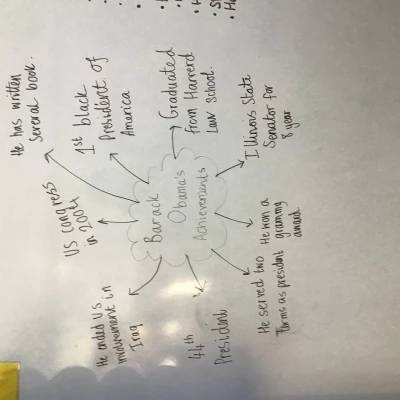 He has written
several book.
1st black
President of
America
Graduated
from Harverd
Law School.
Illinois State
Senator for
8 year
US congress
in 200th
Barack
Obama's
Achievements
He won a
grammy
award
He ended US
involvement in
Iraq
44th
President
He served two
Terms as president